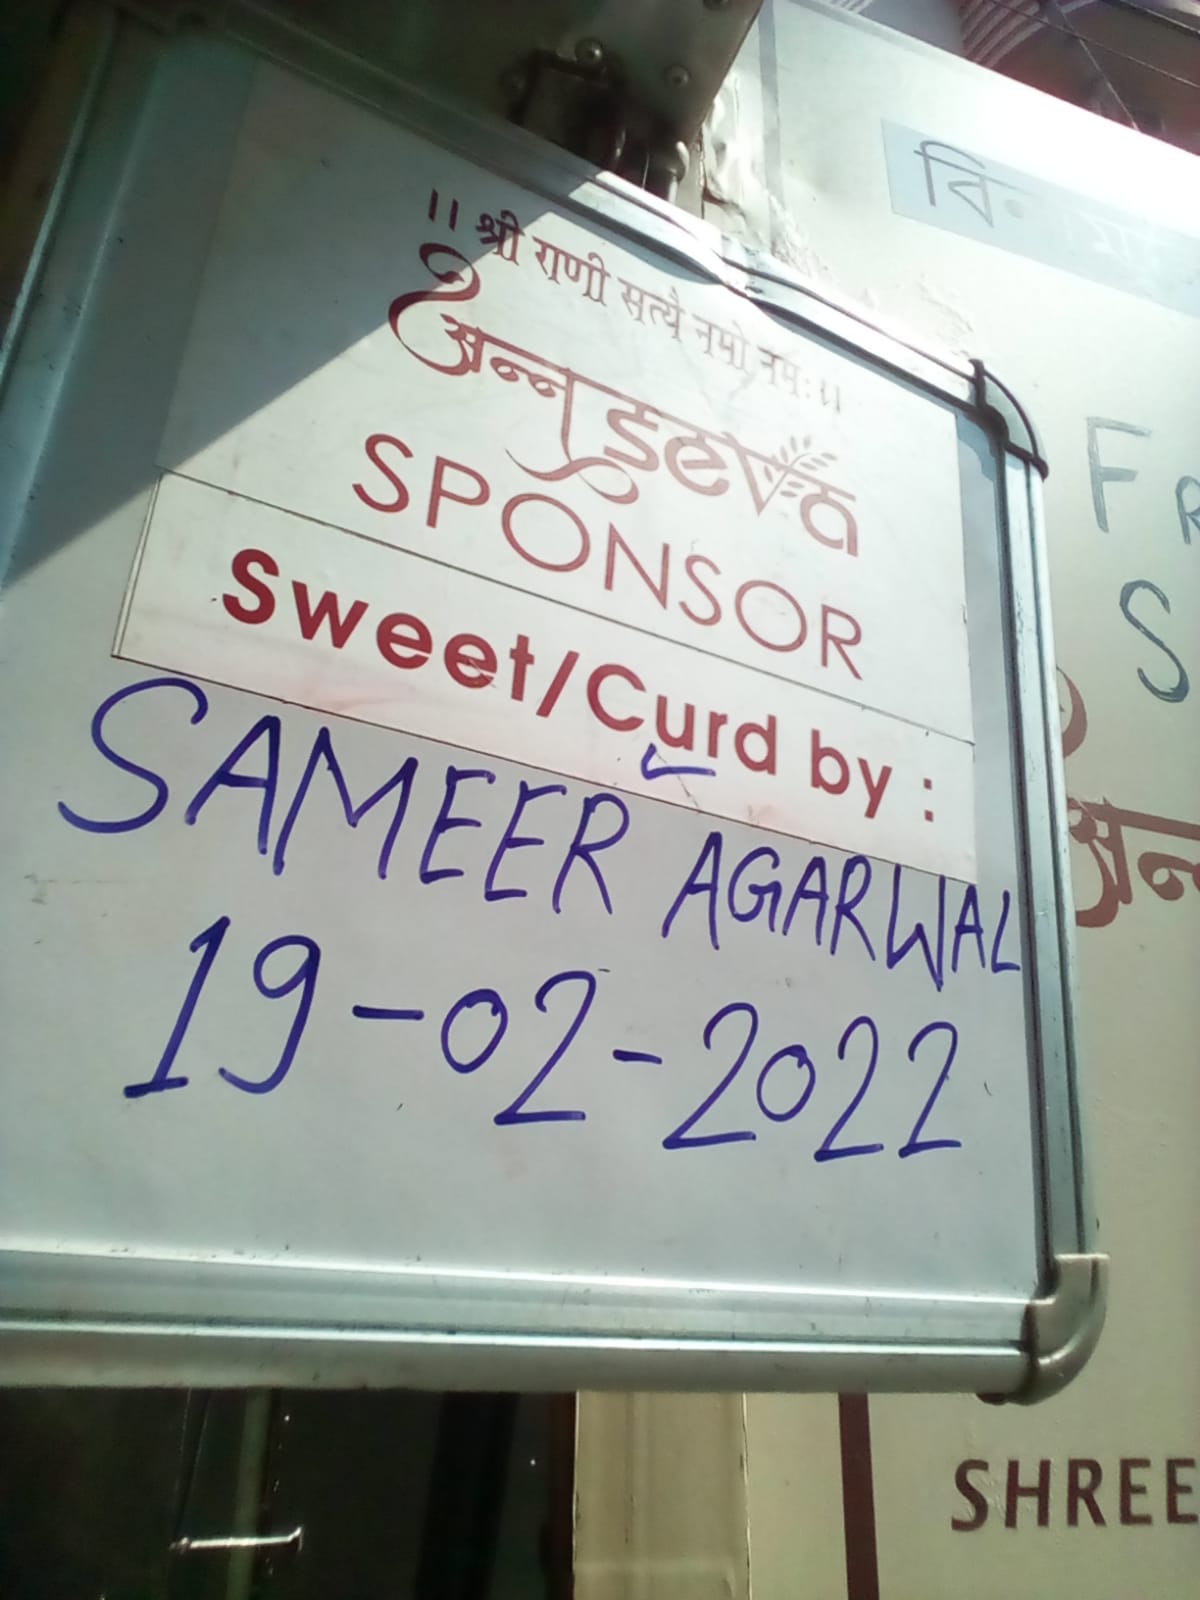 ।। श्री राणी सत्यै नमो नमः ।।
अन्न seva
SPONSOR
Sweet/Curd by :
SAMEER AGARWAL
19-02-2022
वि
F
S
अन्न
SHREE